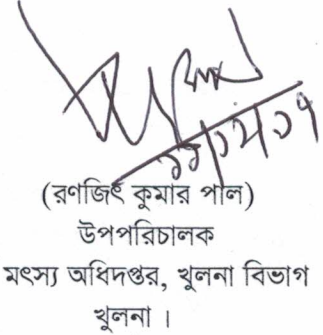 (রণজিৎ কুমার পাল)
উপপরিচালক
মৎস্য অধিদপ্তর, খুলনা বিভাগ
খুলনা ।